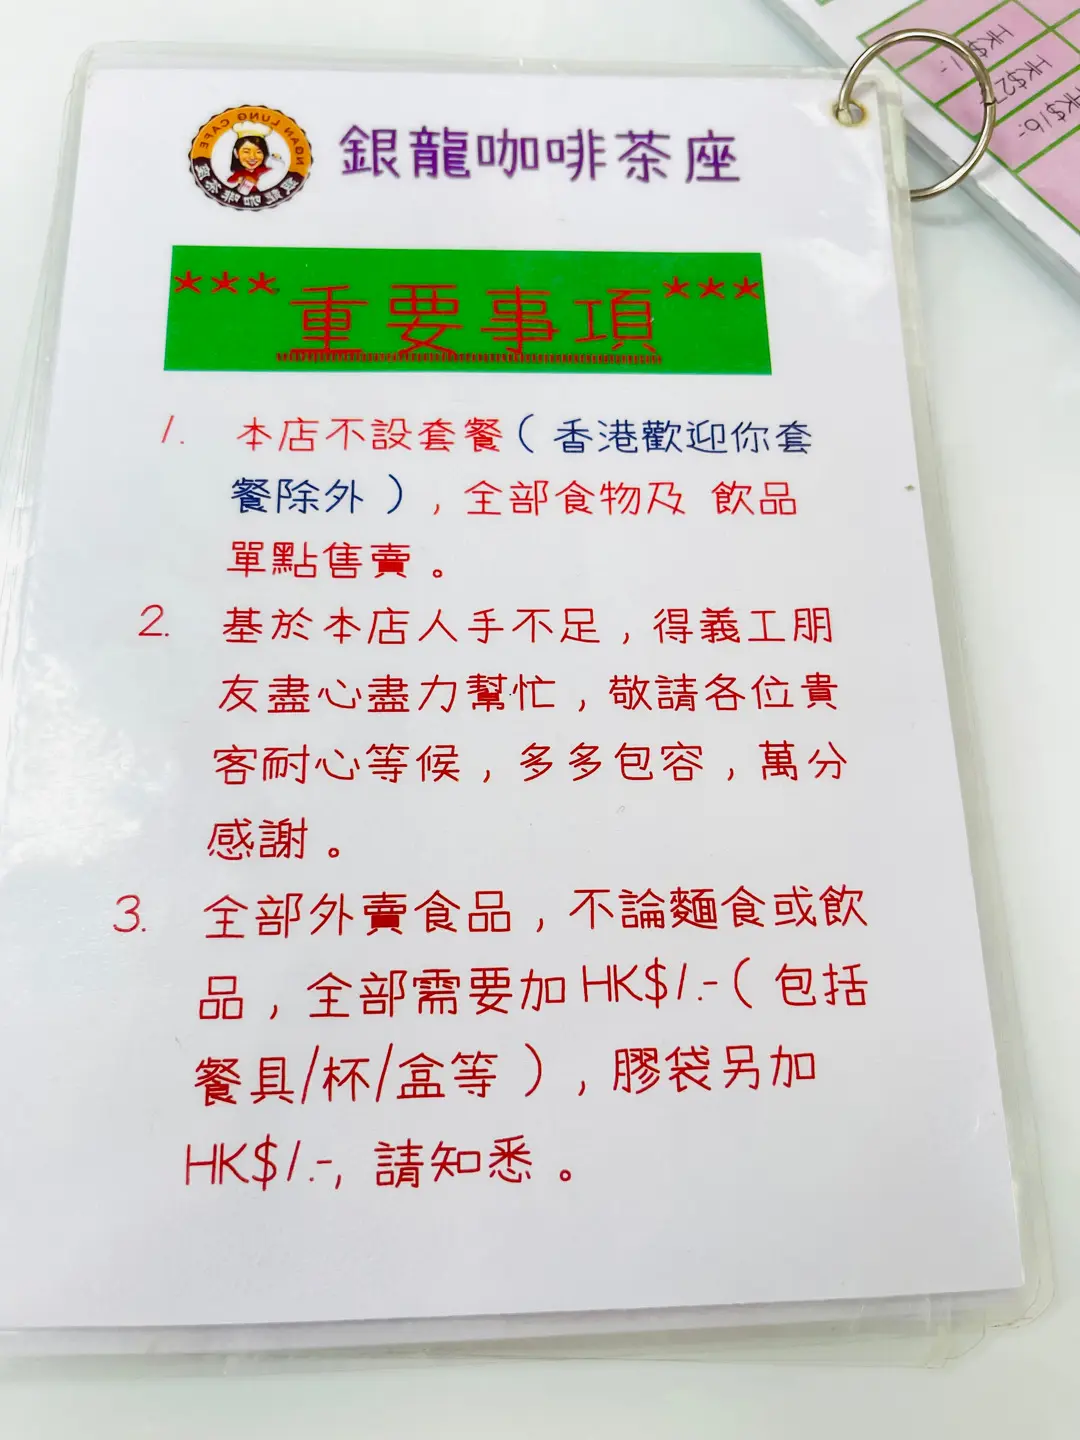 NGAN LUNG CAFE
銀龍咖啡茶座
銀龍咖啡茶座
***重要事項***
1. 本店不設套餐（香港歡迎你套
餐除外），全部食物及 飲品
單點售賣。
2. 基於本店人手不足，得義工朋
友盡心盡力幫忙，敬請各位貴
客耐心等候，多多包容，萬分
感謝。
3. 全部外賣食品，不論麵食或飲
品，全部需要加HK$1.-（包括
餐具/杯/盒等），膠袋另加
HK$1.-, 請知悉。